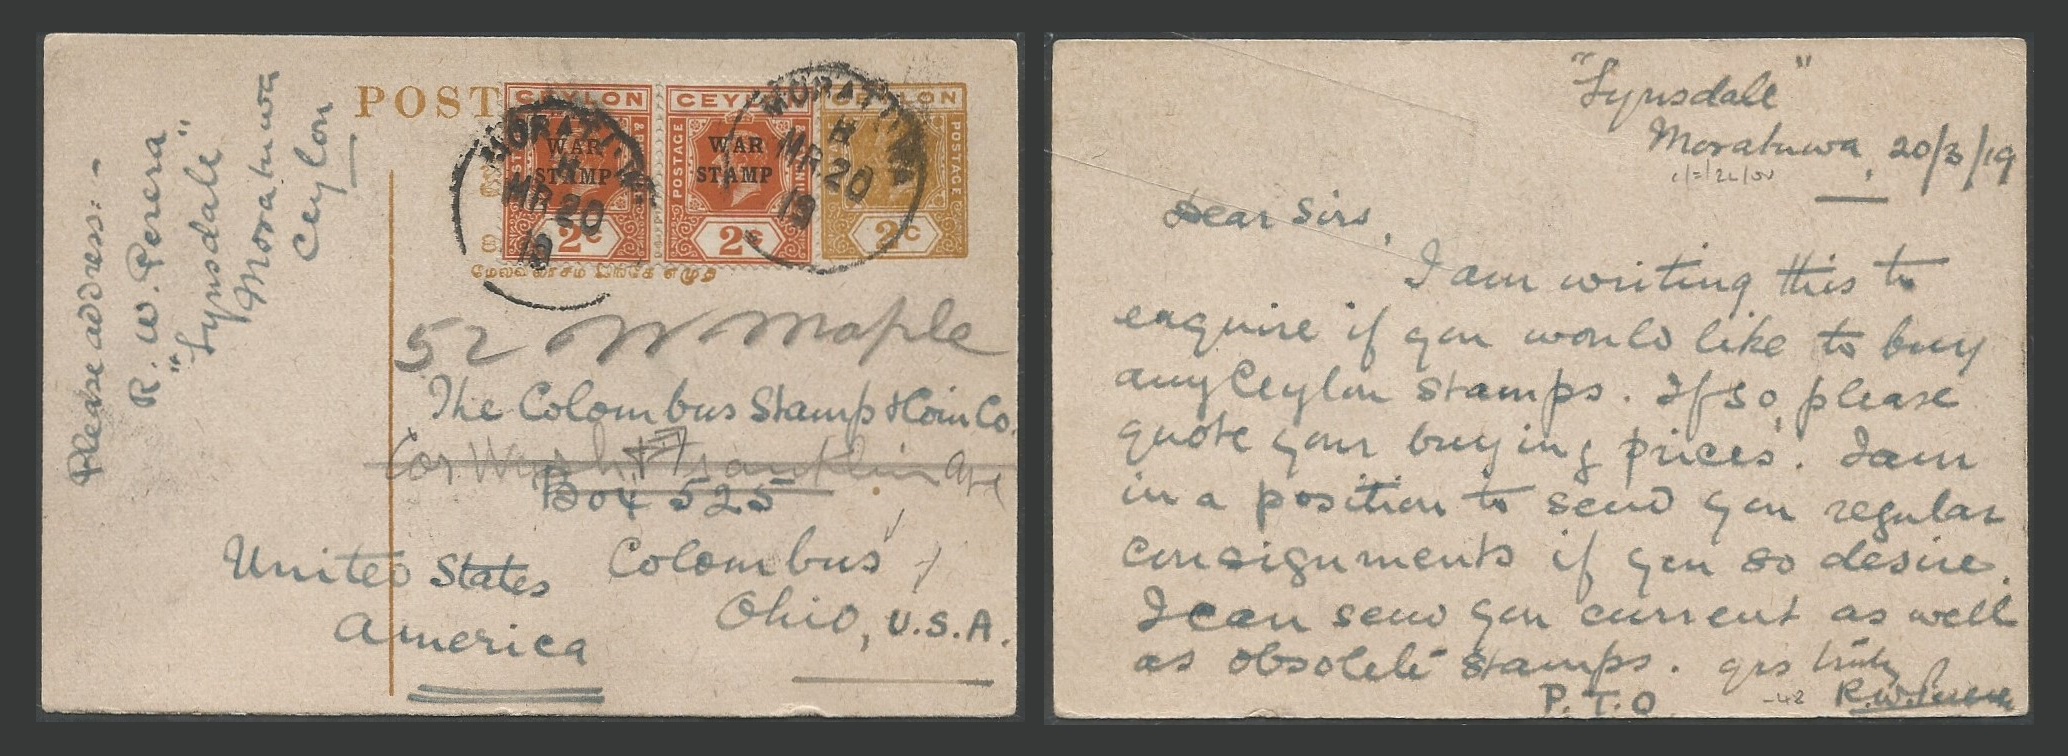 POST
CEYLON
WAR
STAMP
POSTAGE
2c
CEYLON
WAR
STAMP
POSTAGE
2c
CEYLON
POSTAGE
2c
MORATUWA
H
MR 20
19
MORATUWA
H
MR 20
19
மேல்விலாசம் இங்கே எழுது
Please address:-
R. W. Perera
"Lynsdale"
Moratuwa
Ceylon
52 W Maple
The Colombus Stamp & Coin Co.
Cor Wash & Franklin Ave
Box 525
Colombus
Ohio, U.S.A.
United States
America
"Lynsdale"
Moratuwa, 20/3/19
Dear Sirs,
I am writing this to
enquire if you would like to buy
any Ceylon stamps. If so, please
quote your buying prices. I am
in a position to send you regular
consignments if you so desire.
I can send you current as well
as obsolete stamps. yrs truly
P.T.O R.W.Perera